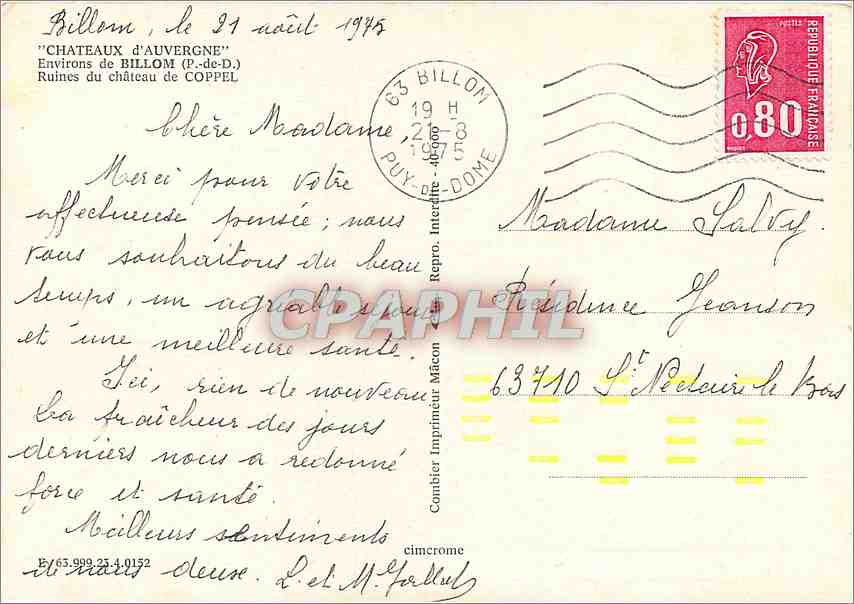 Billom, le 21 août 1975
"CHATEAUX d'AUVERGNE"
Environs de BILLOM (P.-de-D.)
Ruines du château de COPPEL
Chère Madame,
Merci pour votre
affectueuse pensée ; nous
vous souhaitons du beau
temps, un agréable séjour
et une meilleure santé.
Ici, rien de nouveau
La fraîcheur des jours
derniers nous a redonné
force et santé.
Meilleurs sentiments
de nous deux. L. et M.
E/ 63.999.23.4.0152
cimcrome
Combier Imprimeur Mâcon Repro. Interdite - 40-000
63 BILLOM
19 H
21-8
1975
PUY-DE-DOME
POSTES
REPUBLIQUE FRANÇAISE
0,80
Madame Salvy.
Résidence Jeanson
63710 St Nectaire le Bas
CPAPHIL